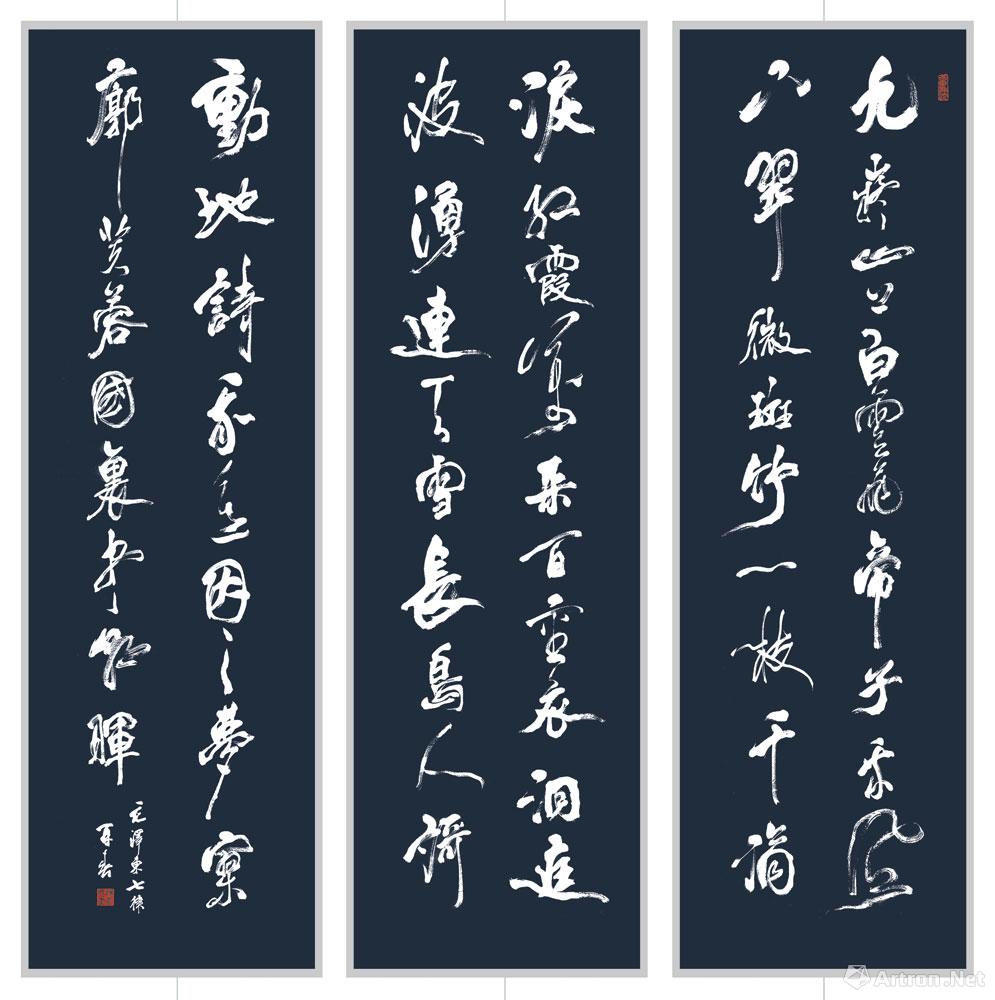 九嶷山上白雲飛帝子乘風
下翠微斑竹一枝千滴
淚紅霞萬朵百重衣洞庭
波湧連天雪長島人謌
動地詩我欲因之夢寥
廓芙蓉國裏盡朝暉
毛澤東七律
Artron.Net